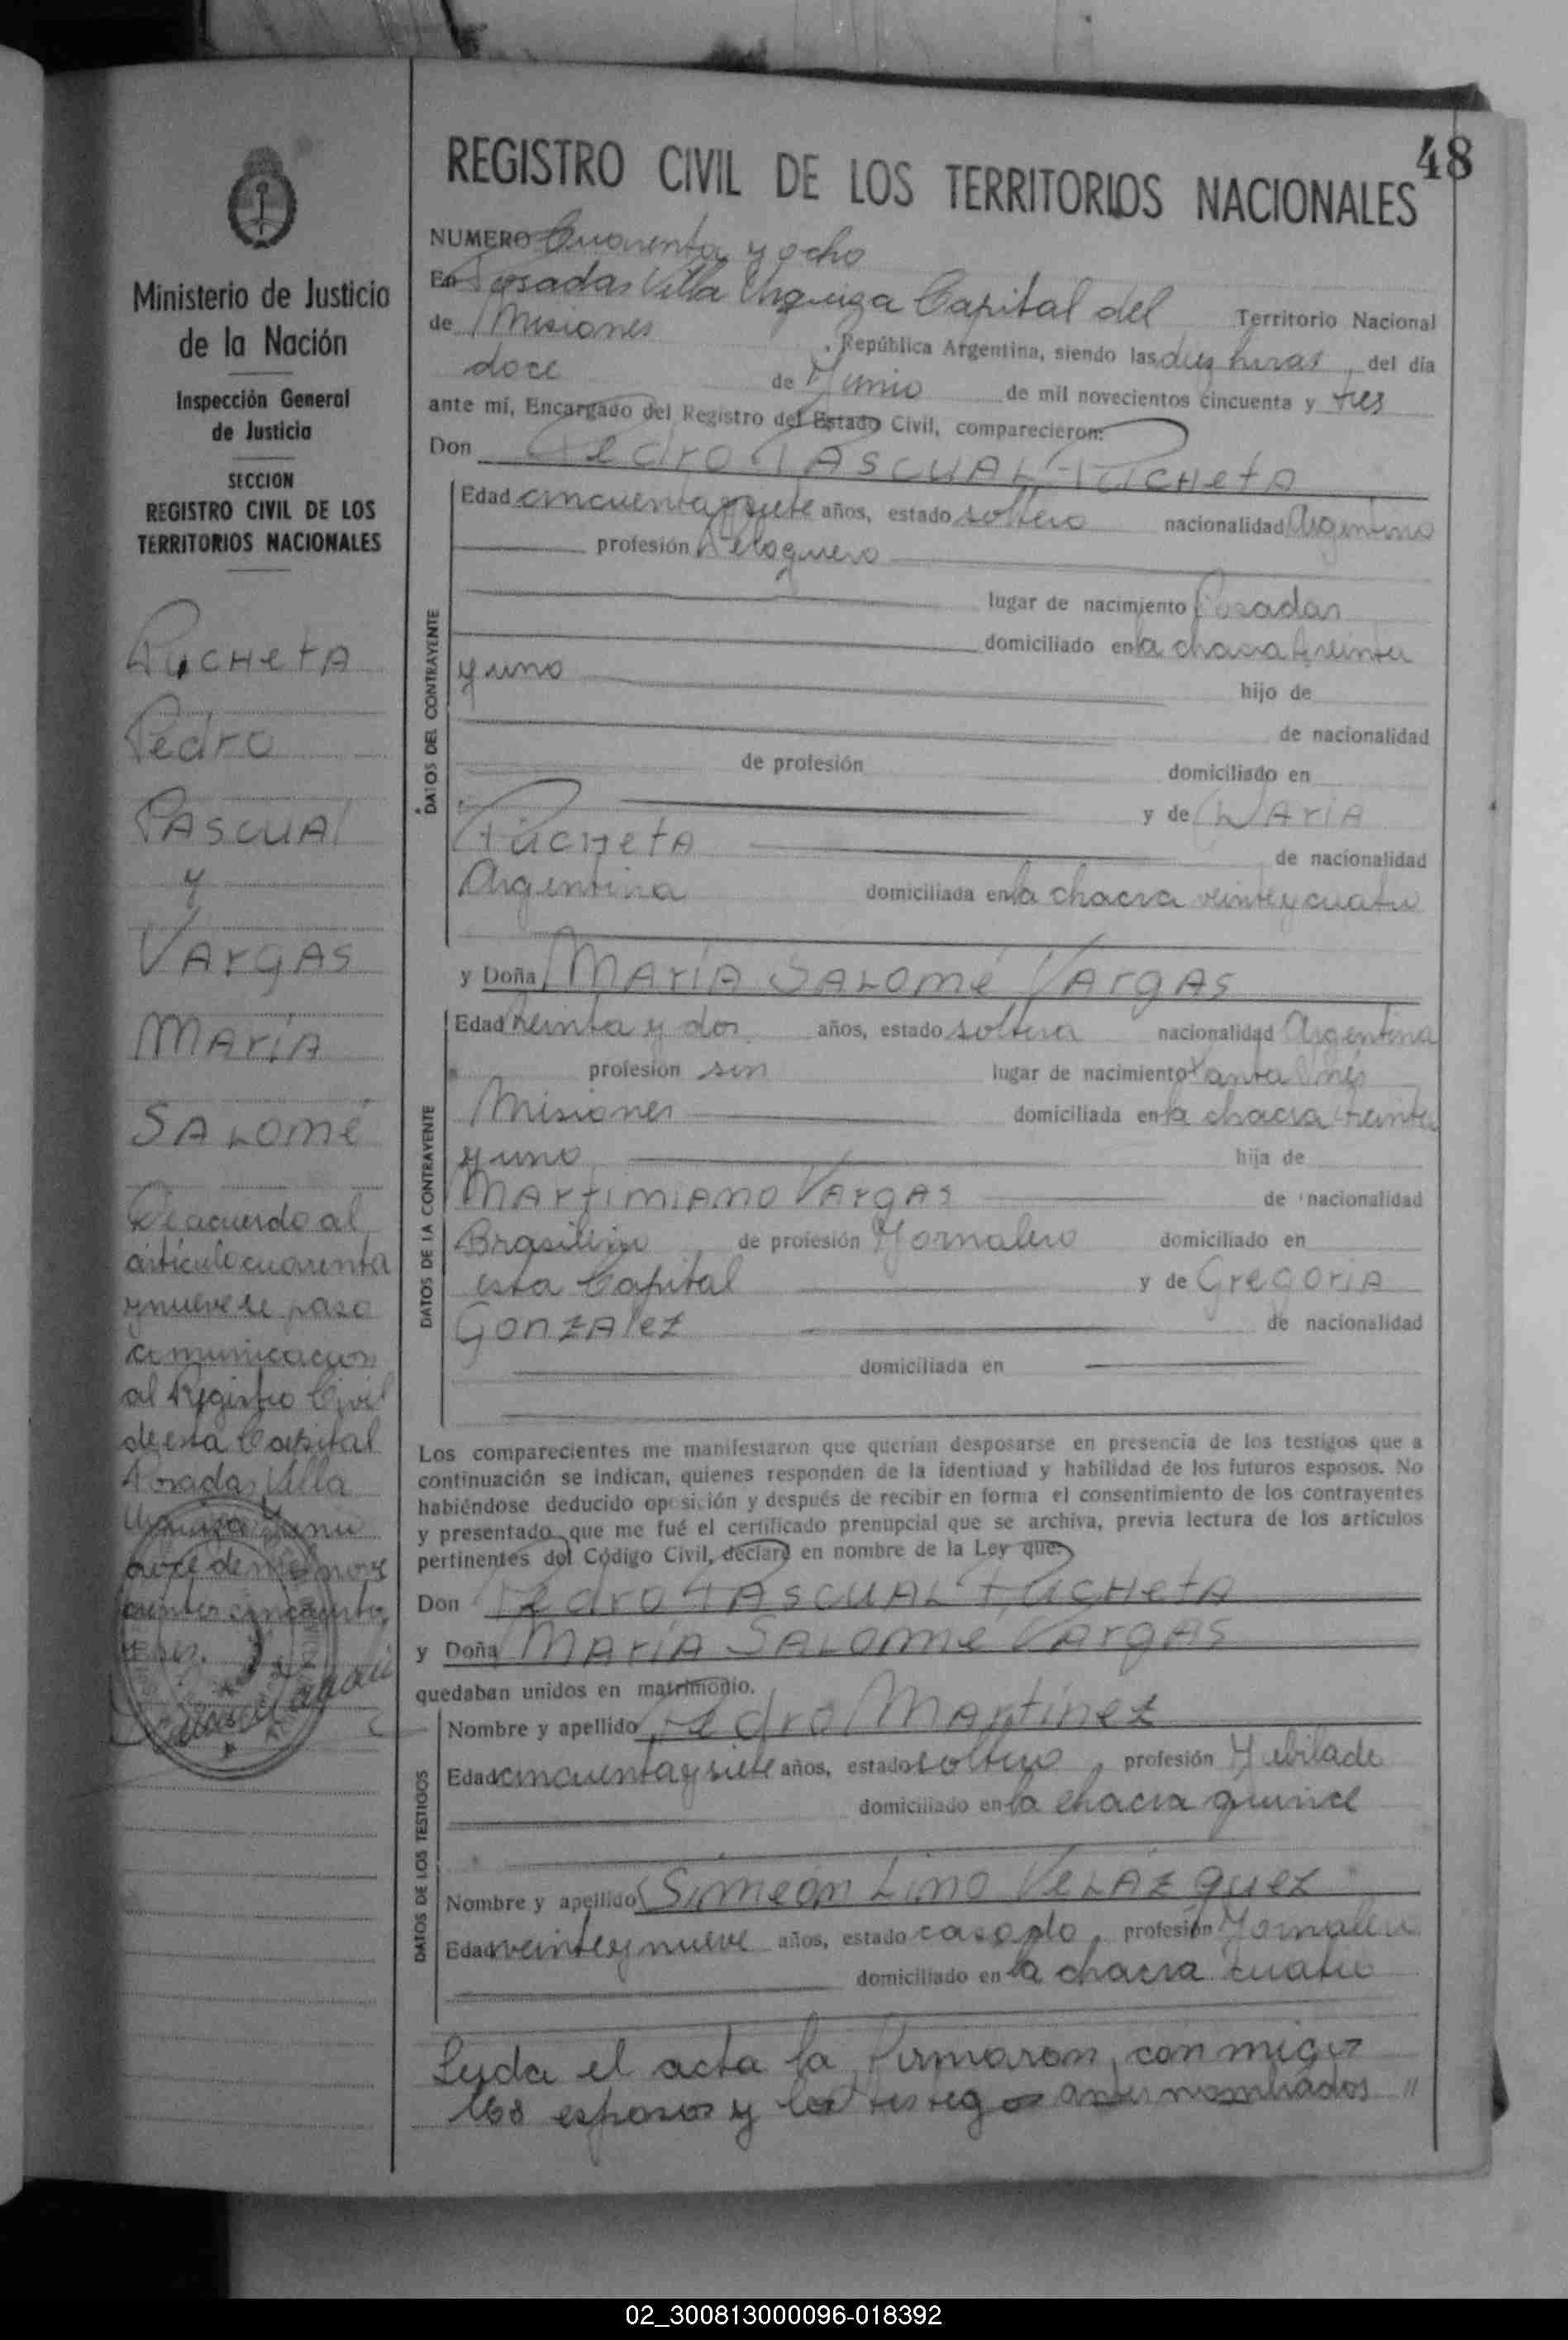 48
REGISTRO CIVIL DE LOS TERRITORIOS NACIONALES
Ministerio de Justicia
de la Nación
Inspección General
de Justicia
SECCION
REGISTRO CIVIL DE LOS
TERRITORIOS NACIONALES
Pucheta
Pedro
Pascual
y
Vargas
María
Salomé
De acuerdo al
artículo cuarenta
y nueve se paso
comunicacion
al Registro Civil
de esta Capital
Posadas Villa
Urquiza Junio
doce de mil nove
cientos cincuenta
y tres.
NUMERO Cuarenta y ocho
En Posadas Villa Urquiza Capital del Territorio Nacional
de Misiones, República Argentina, siendo las diez horas, del día
doce de Junio de mil novecientos cincuenta y tres
ante mí, Encargado del Registro del Estado Civil, comparecieron:
Don Pedro Pascual Pucheta
DATOS DEL CONTRAYENTE
Edad cincuenta y siete años, estado soltero nacionalidad Argentino
profesión
lugar de nacimiento Posadas
domiciliado en la chacra treinta
y uno hijo de
de nacionalidad
de profesión domiciliado en
y de María
Pucheta de nacionalidad
Argentina domiciliada en la chacra veinte y cuatro
y Doña María Salomé Vargas
DATOS DE LA CONTRAYENTE
Edad treinta y dos años, estado soltera nacionalidad Argentina
profesión sin lugar de nacimiento Santa Inés
Misiones domiciliada en la chacra treinta
y uno hija de
Martimiano Vargas de nacionalidad
Brasilero de profesión Jornalero domiciliado en
esta Capital y de Gregoria
Gonzalez de nacionalidad
domiciliada en
Los comparecientes me manifestaron que querían desposarse en presencia de los testigos que a
continuación se indican, quienes responden de la identidad y habilidad de los futuros esposos. No
habiéndose deducido oposición y después de recibir en forma el consentimiento de los contrayentes
y presentado que me fué el certificado prenupcial que se archiva, previa lectura de los artículos
pertinentes del Código Civil, declaré en nombre de la Ley que:
Don Pedro Pascual Pucheta
y Doña María Salomé Vargas
quedaban unidos en matrimonio.
DATOS DE LOS TESTIGOS
Nombre y apellido Pedro Martínez
Edad cincuenta y siete años, estado soltero, profesión Jubilado
domiciliado en la chacra quince
Nombre y apellido Simeón Lino Velázquez
Edad veinte y nueve años, estado casado, profesión Jornalero
domiciliado en la chacra cuatro
Leyda el acta la firmaron, conmigo
los esposos y los testigos antes nombrados "
02_300813000096-018392